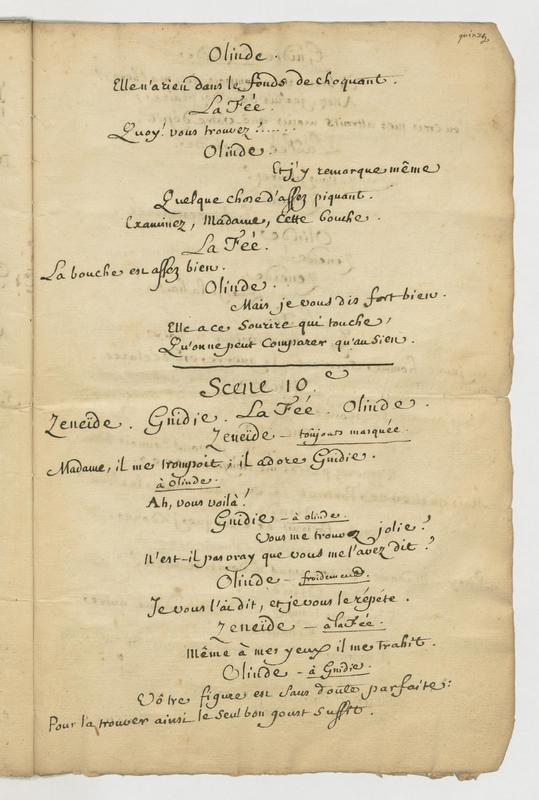 quinze
Olinde.
Elle n'a rien dans le fonds de choquant.
La Fée.
Quoy! vous trouvez!......
Olinde.
Et j'y remarque même
Quelque chose d'assez piquant.
Examinez, Madame, Cette bouche.
La Fée.
La bouche est assez bien.
Olinde.
Mais je vous dis fort bien.
Elle a ce Sourire qui touche,
Qu'on ne peut Comparer qu'au Sien.
Scene 10.e
Zeneïde. Gnidie. La Fée. Olinde.
Zeneïde – toujours masquée.
Madame, il me trompoit; il adore Gnidie.
à Olinde.
Ah, vous voilà!
Gnidie – à olinde.
Vous me trouvez jolie?
N'est-il pas vray que vous me l'avez dit?
Olinde – froidement.
Je vous l'ai dit, et je vous le répéte.
Zeneïde – à la Fée.
Même à mes yeux il me trahit.
Olinde – à Gnidie.
Vôtre figure est Sans doute parfaite:
Pour la trouver ainsi le Seul bon goust Suffit.